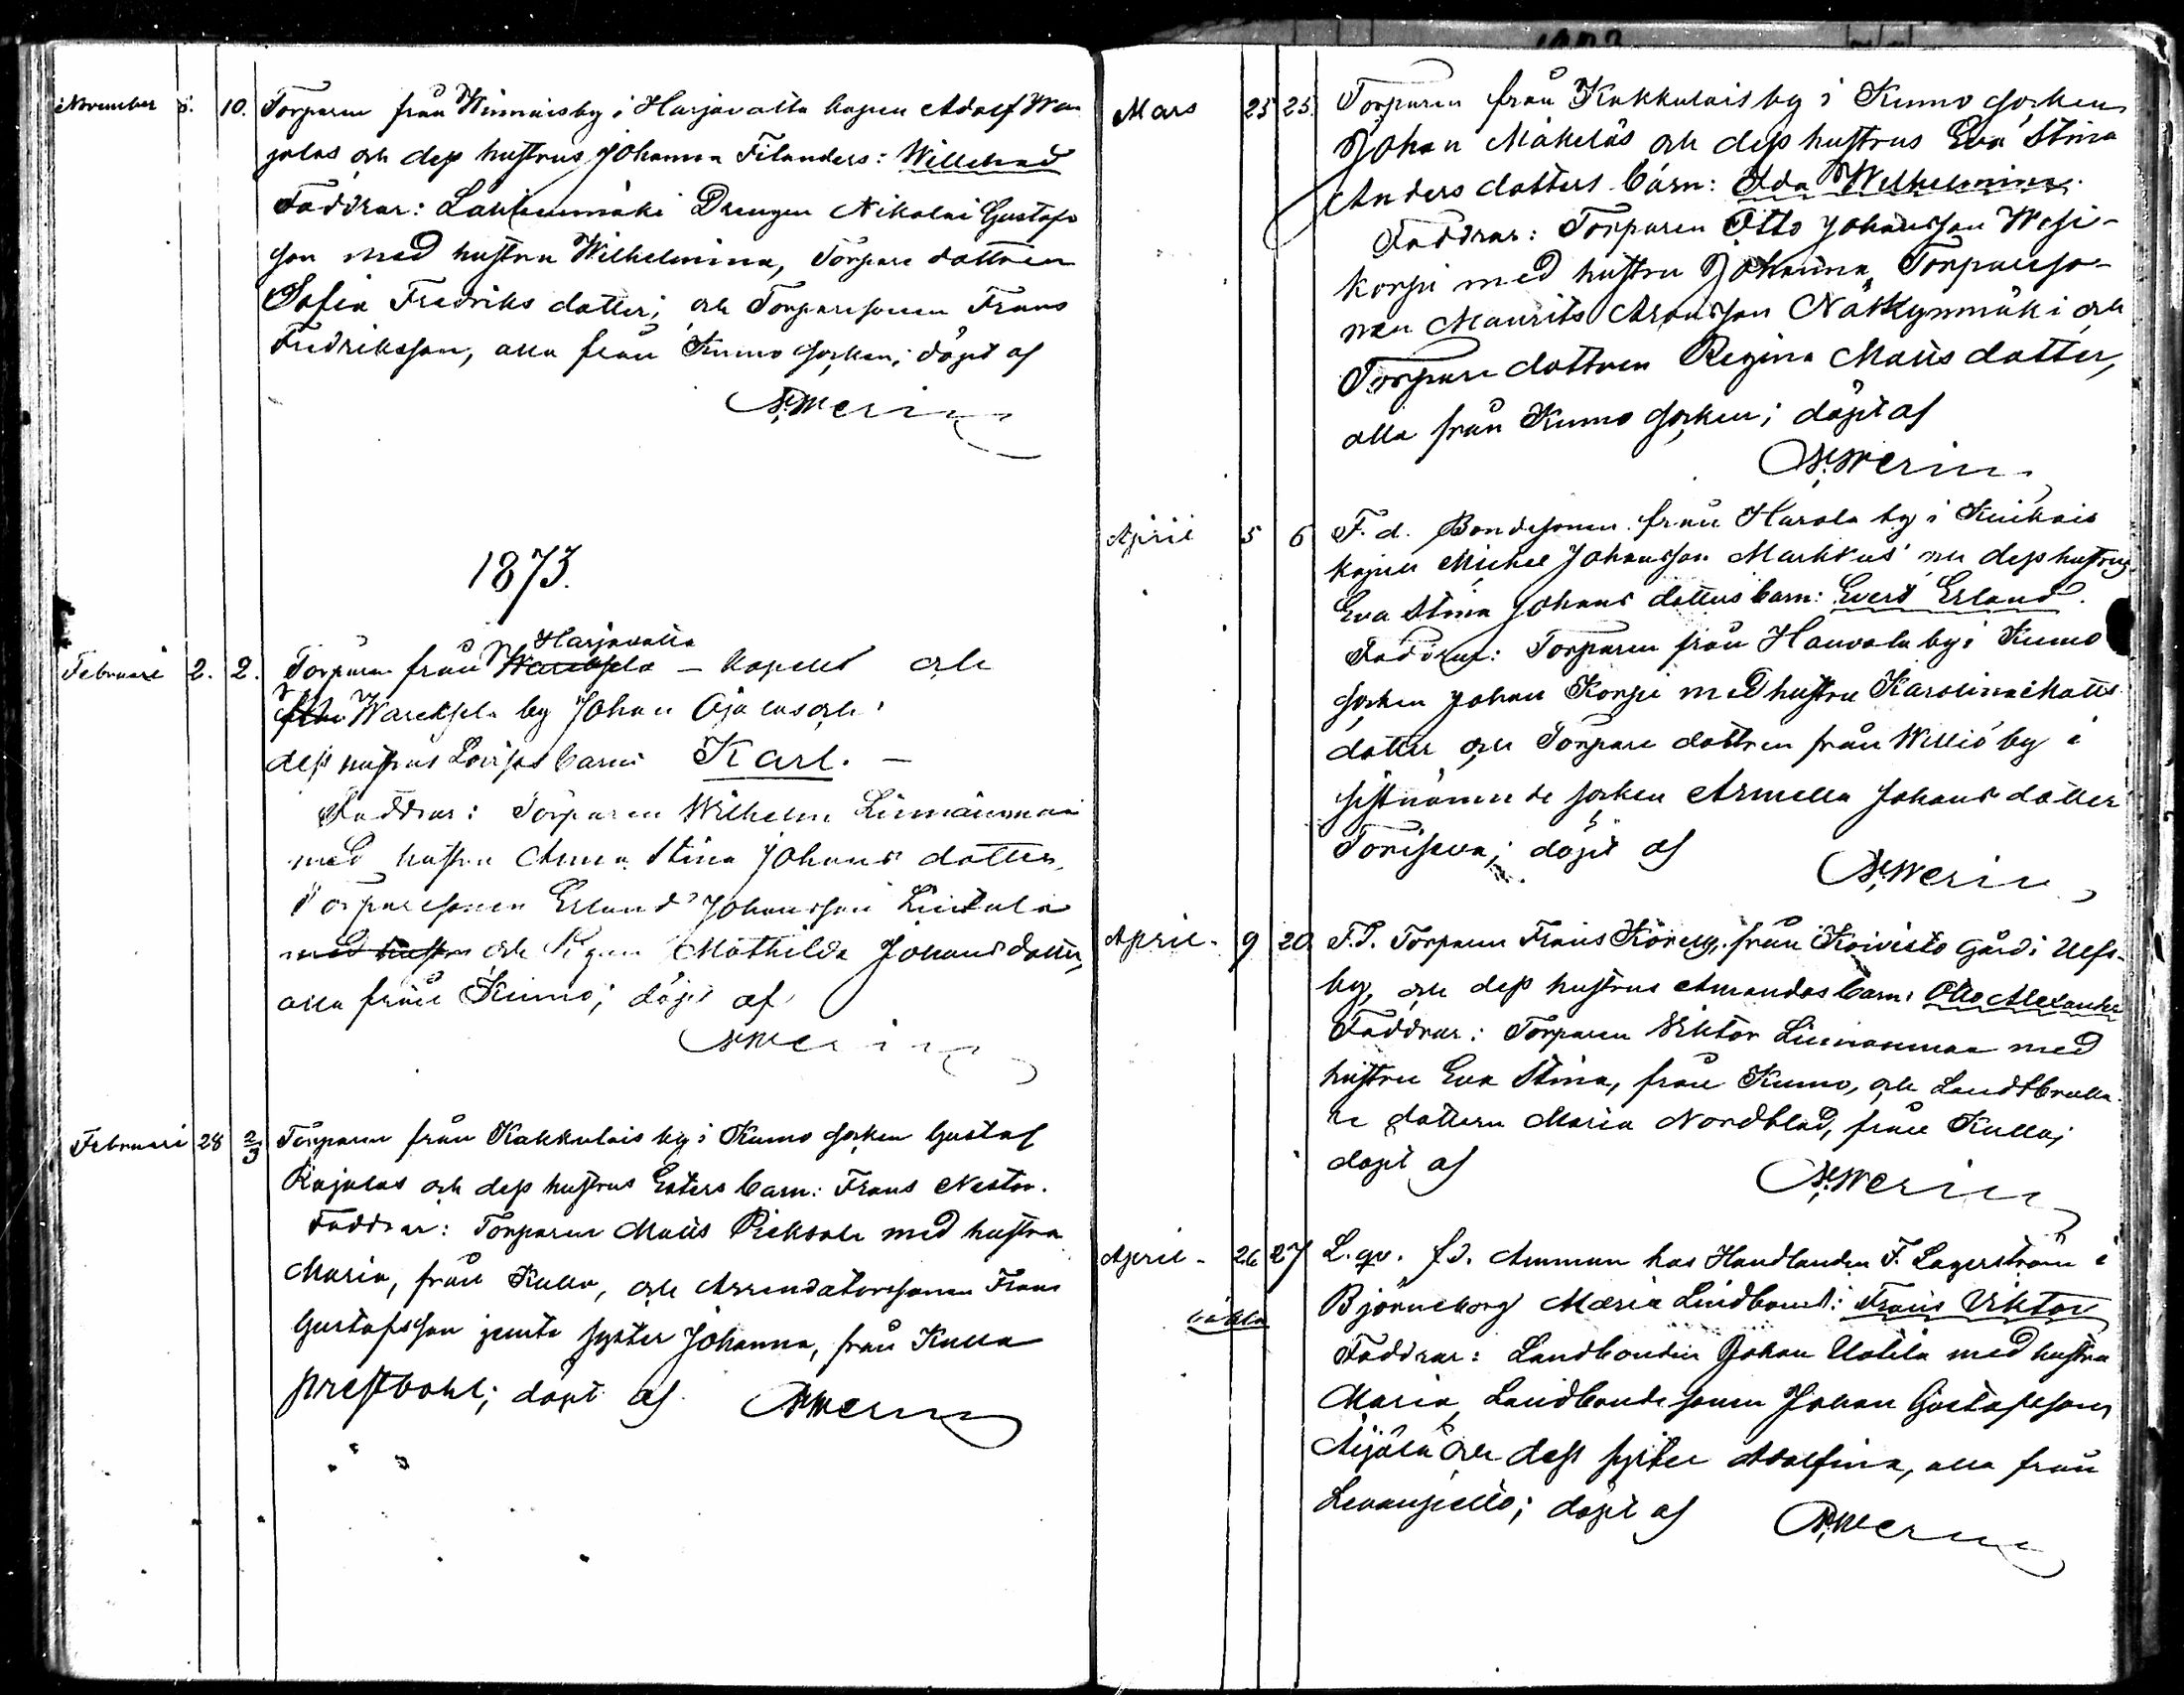 November 5. 10. Torparen från Winnais by i Harjavalta kapell Adolf Wan
jalas och dess hustrus Johanna Filanders: Willehad
Faddrar: Lauttenmäki Drengen Nikolai Gustafs
son med hustru Wilhelmina, Torpare dottren
Sofia Fredriks dotter; och Torparesonen Frans
Fredriksson, alla från Kumo socken; döpt af
1873.
Harjavalta
Februari 2. 2. Torparen från – kapell och
Wareksela by Johan Ojalas och
dess hustrus Lovisas barn Karl. –
Faddrar: Torparen Wilhelm Linnainmaa
med hustru Anna Stina Johans dotter,
Torparesonen Erland Johansson Lintula
med hustru och Pigan Mathilda Johansdotter,
alla från Kumo; döpt af
Februari 28 2/3 Torparen från Kakkulais by i Kumo socken Gustaf
Rajalas och dess hustrus Esters barn: Frans Nestor.
Faddrar: Torparen Matts Pieksale med hustra
Maria, från Kulla, och Arrendatorssonen Frans
Gustafsson jemte syster Johanna, från Kulla
prestbohl; döpt af
Mars 25 25. Torparen från Kakkulais by i Kumo socken
Johan Mäkeläs och dess hustrus Eva Stina
Anders dotters barn: Ida Wilhelmina.
Faddrar: Torparen Otto Johansson Wesi-
korpi med hustru Johanna, Torpareso-
nen Maurits Aronsson Nätkynmäki och
Torpare dottren Regina Matts dotter,
alla från Kumo socken; döpt af
April 5 6 F. d. Bondesonen från Harola by i Kiukais
kapell Michel Johansson Markkus' och dess hustrus
Eva Stina Johans dotters barn: Evert Erland.
Faddrar: Torparen från Hauvola by i Kumo
socken Johan Korpi med hustru Karolina Matts
dotter och Torpare dottren från Willio by i
sistnämnde socken Armella Johans dotter
Torisseva; döpt af
April - 9 20. F.d. Torparen Frans från Koivisto gård i Ulfs-
by, och dess hustrus Amandas barn: Otto Alexander
Faddrar: Torparen Viktor Linnanmaa med
hustru Eva Stina, från Kumo, och Landtbruka-
re dottern Maria Nordblad, från Kulla;
döpt af
April - 26 27 L. qv. f.d. Amman hos Handlanden F. Lagerström i
oäkta Björneborg Maria Lindbom: Frans Viktor
Faddrar: Landbonden Johan Uotila med hustru
Maria, Landbonde sonen Johan Gustafsson
Äijälä och dess syster Adolfina, alla från
Levanpelto; döpt af